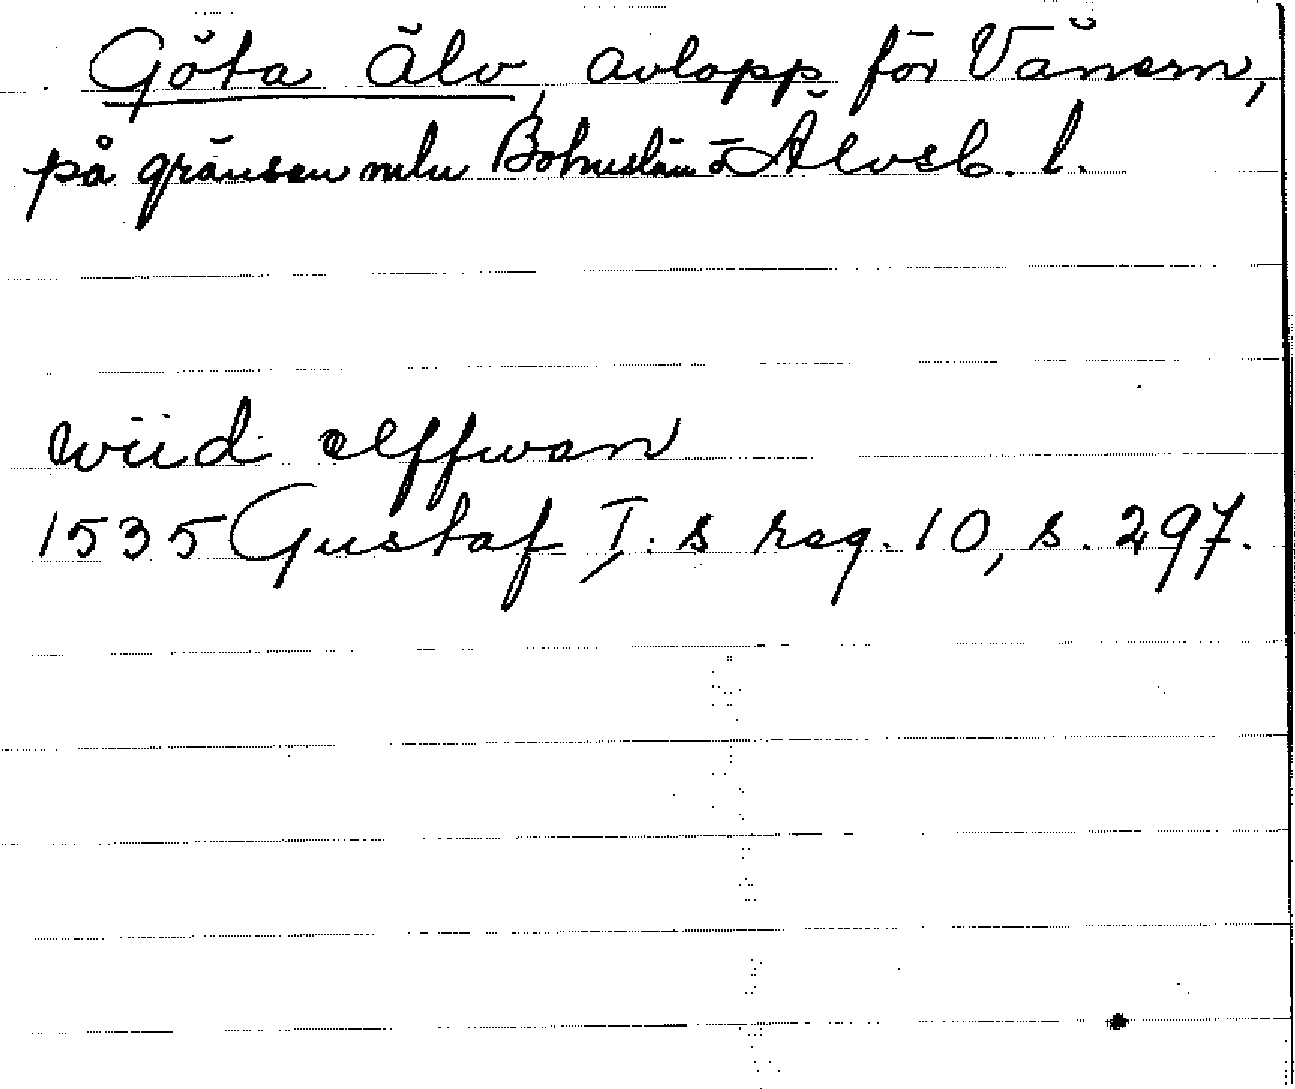 Göta älv, avlopp för Vänern,
på gränsen mln Bohuslän o Älvsb. l.
wiid elffwan
1535 Gustaf I:s reg. 10, s. 297.